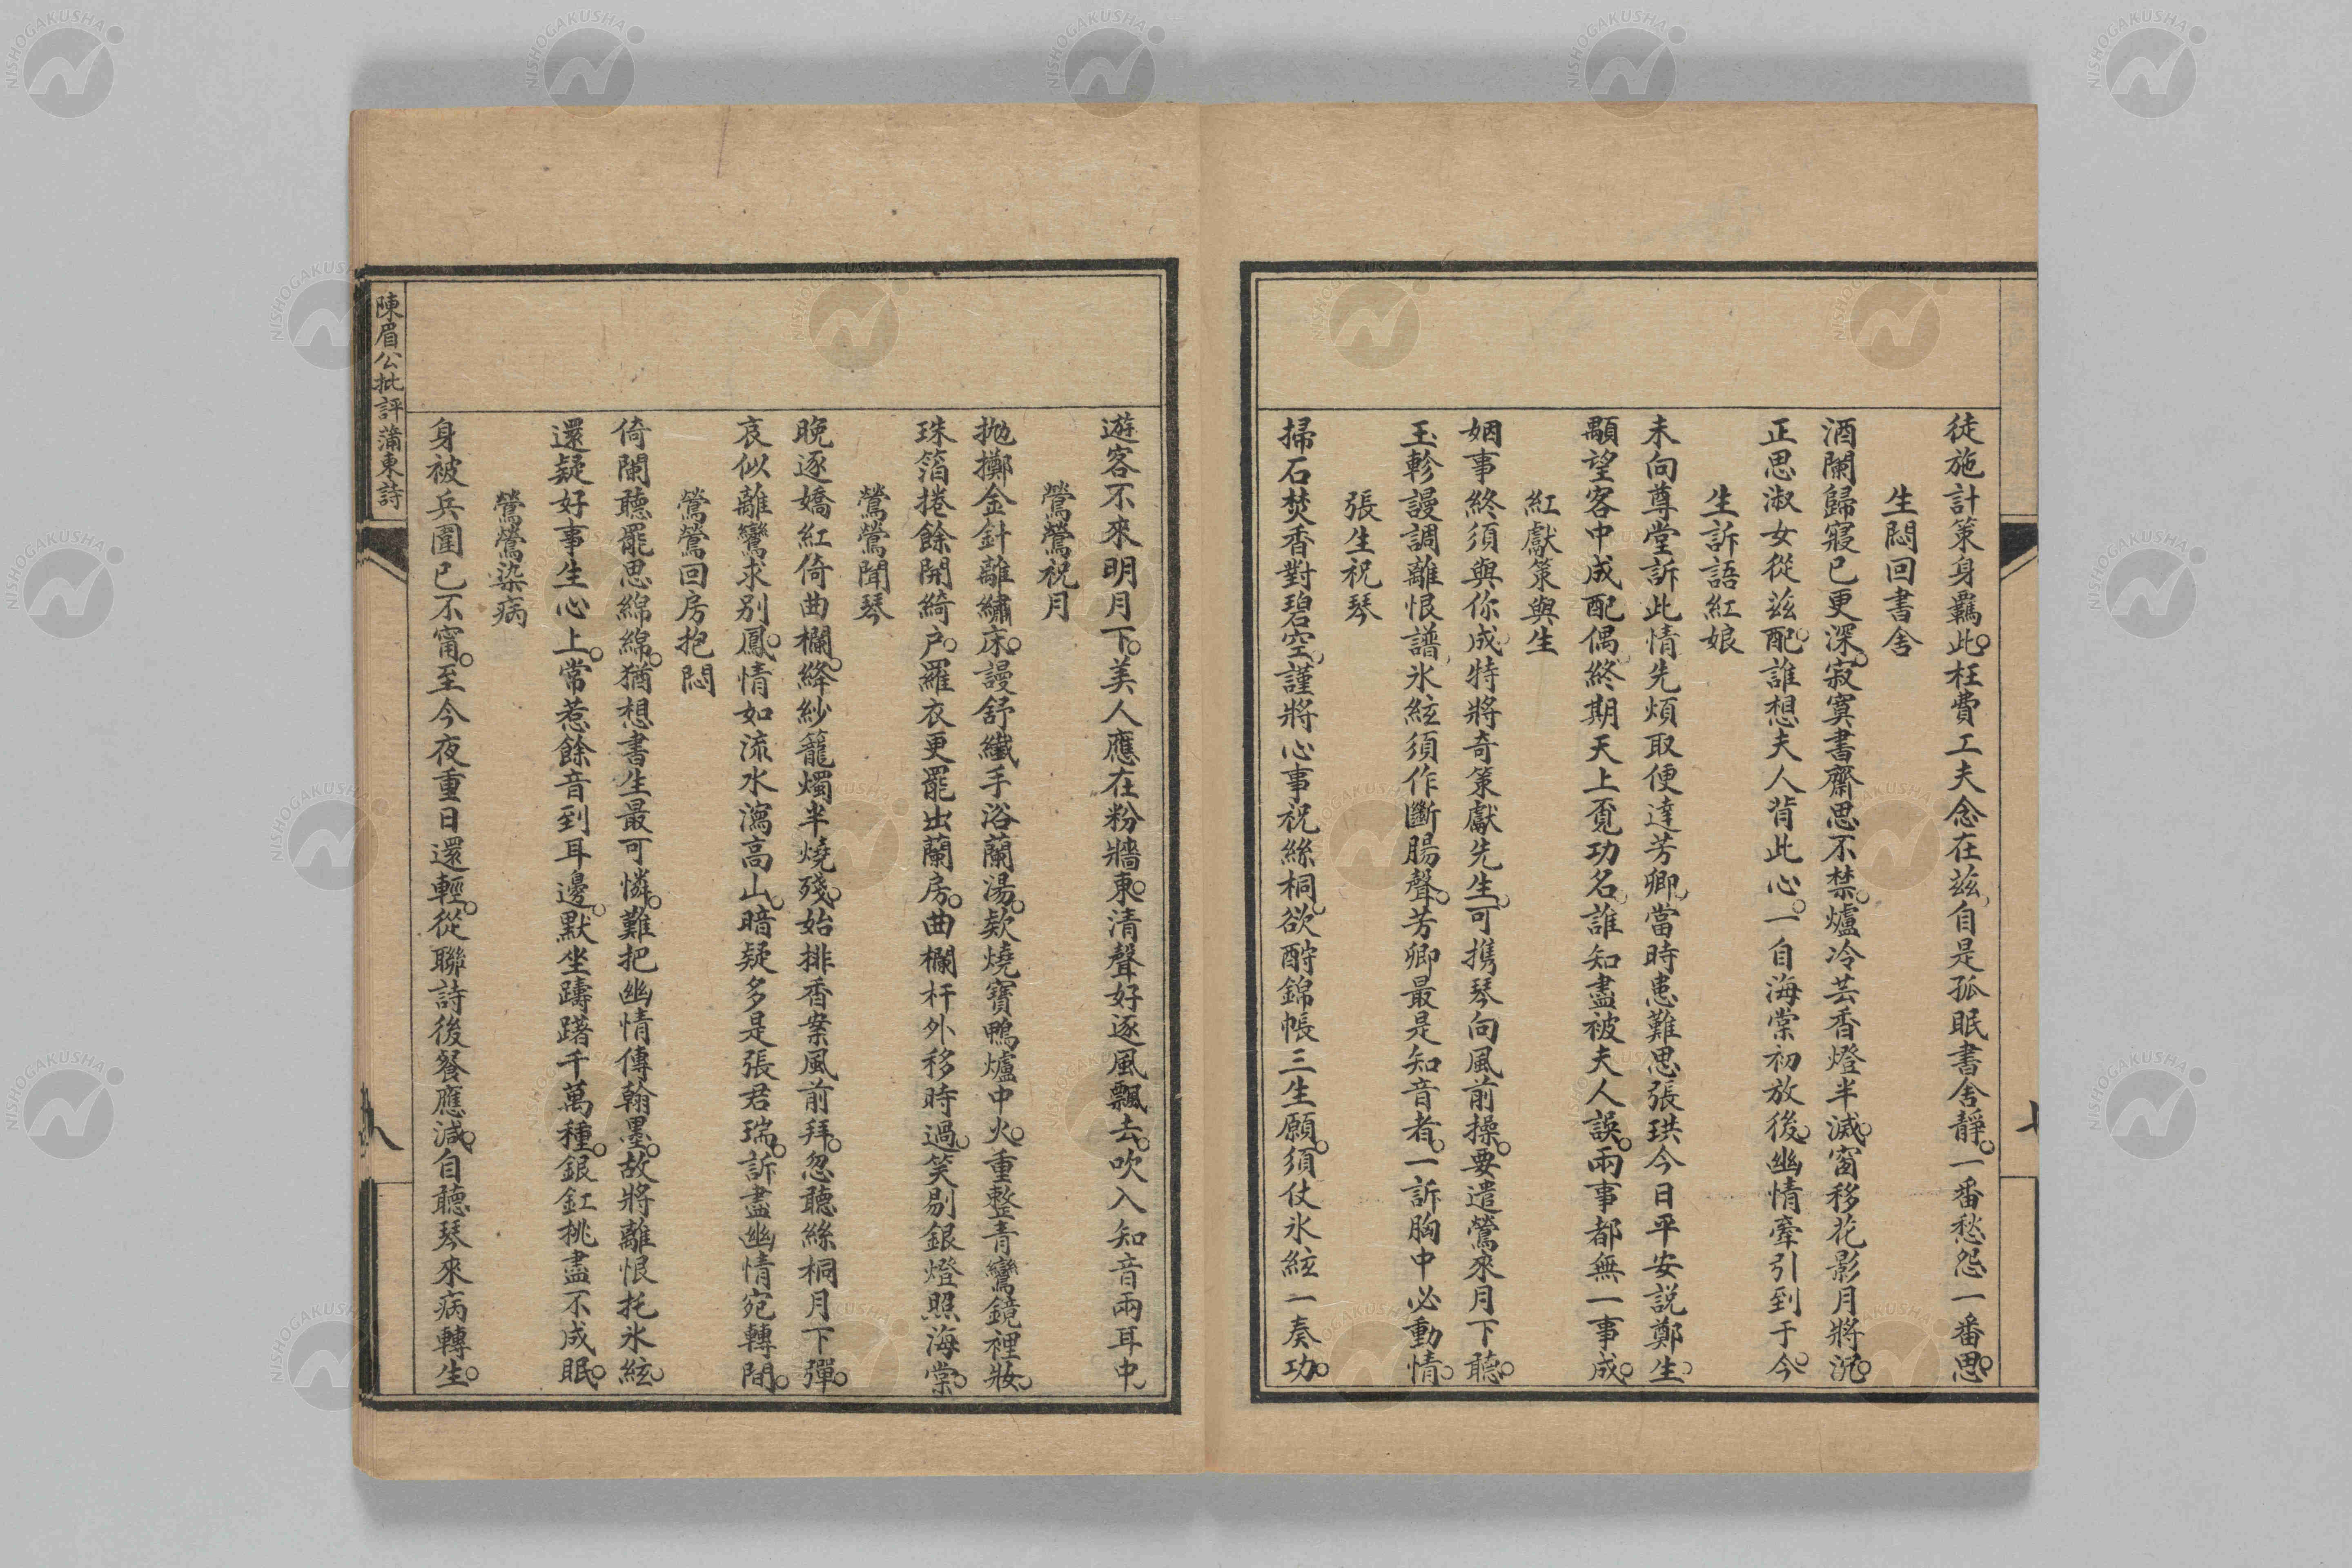 徒施計策身羈此枉費工夫念在茲自是孤眠書舍靜一番愁怨一番思
生悶回書舍
酒闌歸寢已更深寂寞書齋思不禁爐冷芸香燈半滅窗移花影月將沉
正思淑女從茲配誰想夫人背此心一自海棠初放後幽情牽引到于今
生訴語紅娘
未向尊堂訴此情先煩取便達芳卿當時患難思張珙今日平安説鄭生
顒望客中成配偶終期天上覓功名誰知盡被夫人誤兩事都無一事成
紅獻策與生
姻事終須與你成特將奇策獻先生可攜琴向風前操要遣鶯來月下聽
玉軫謾調離恨譜氷絃須作斷腸聲芳卿最是知音者一訴胸中必動情
張生祝琴
掃石焚香對碧空謹將心事祝絲桐欲酧錦帳三生願須仗氷絃一奏功
七
遊客不來明月下美人應在粉牆東清聲好逐風飄去吹入知音兩耳中
鶯鶯祝月
拋擲金針離繡床謾舒纖手浴蘭湯欵燒寶鴨爐中火重整青鸞鏡裡妝
珠箔捲餘開綺户羅衣更罷出蘭房曲欄杆外移時過笑剔銀燈照海棠
鶯鶯聞琴
晚逐嬌紅倚曲欄絳紗籠燭半燒殘始排香案風前拜忽聽絲桐月下彈
哀似離鸞求别鳳情如流水瀉高山暗疑多是張君瑞訴盡幽情宛轉間
鶯鶯回房抱悶
倚闌聽罷思綿綿猶想書生最可憐難把幽情傳翰墨故將離恨托氷絃
還疑好事生心上常惹餘音到耳邊默坐躊躇千萬種銀釭桃盡不成眠
鶯鶯染病
身被兵圍已不甯至今夜重日還輕從聯詩後餐應減自聽琴來病轉生
陳眉公批評蒲東詩
八
NISHOGAKUSHA